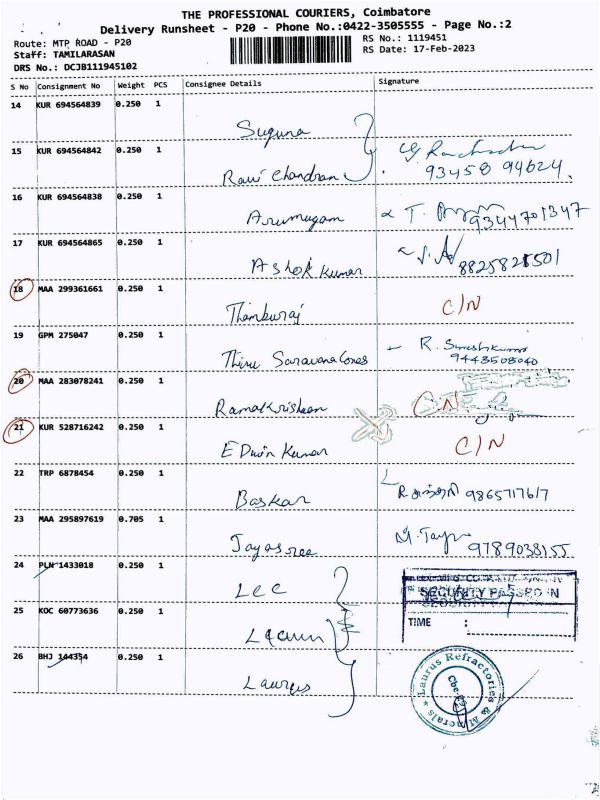 THE PROFESSIONAL COURIERS, Coimbatore
Delivery Runsheet - P20 - Phone No.:0422-3505555 - Page No.:2
Route: MTP ROAD - P20
RS No.: 1119451
Staff: TAMILARASAN
RS Date: 17-Feb-2023
DRS No.: DCJB111945102
S No Consignment No Weight PCS Consignee Details Signature
14 KUR 694564839 0.250 1 Suguna
15 KUR 694564842 0.250 1 Ravi Chandran
93458 94624
16 KUR 694564838 0.250 1 Arumugam T.
9344701347
17 KUR 694564865 0.250 1 Ashok Kumar
8825821501
18 MAA 299361661 0.250 1 Thamburaj C/N
19 GPM 275047 0.250 1 Thiru Saravana R. Sureshkumar
9443508040
20 MAA 283078241 0.250 1 Ramakrishnan C/N
21 KUR 528716242 0.250 1 Edwin Kumar C/N
22 TRP 6878454 0.250 1 Baskar 9865717617
23 MAA 295897619 0.705 1 Jayasree 9789038155
24 PLN 1433018 0.250 1 Lee
25 KOC 60773636 0.250 1
26 BHJ 144354 0.250 1 Laurus
SECURITY PASSED IN
TIME :
Laurus Refractories & Minerals
Cbe